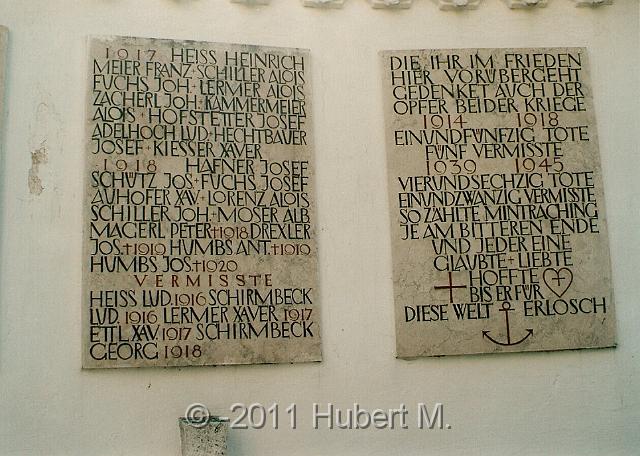 1917 HEISS HEINRICH
MEIER FRANZ · SCHILLER ALOIS
FUCHS JOH · LERMER ALOIS
ZACHERL JOH · KAMMERMEIER
ALOIS · HOFSTETTER JOSEF
ADELHOCH LUD · HECHTBAUER
JOSEF · KIESSER XAVER
· 1918 · HAFNER JOSEF
SCHÜTZ JOS · FUCHS JOSEF
AUHOFER XAV · LORENZ ALOIS
SCHILLER JOH · MOSER ALB
MAGERL PETER †1918 DREXLER
JOS. †1919 HUMBS ANT. †1919
HUMBS JOS. †1920
VERMISSTE
HEISS LUD. 1916 SCHIRMBECK
LUD. 1916 LERMER XAVER 1917
ETTL XAV. 1917 SCHIRMBECK
GEORG 1918
DIE IHR IM FRIEDEN
HIER VORÜBERGEHT
GEDENKET AUCH DER
OPFER BEIDER KRIEGE
1914 1918
EINUNDFÜNFZIG TOTE
FÜNF VERMISSTE
1939 1945
VIERUNDSECHZIG TOTE
EINUNDZWANZIG VERMISSTE
SO ZÄHLTE MINTRACHING
JE AM BITTEREN ENDE
UND JEDER EINE
GLAUBTE · LIEBTE
HOFFTE
BIS ER FÜR
DIESE WELT ERLOSCH
© -2011 Hubert M.